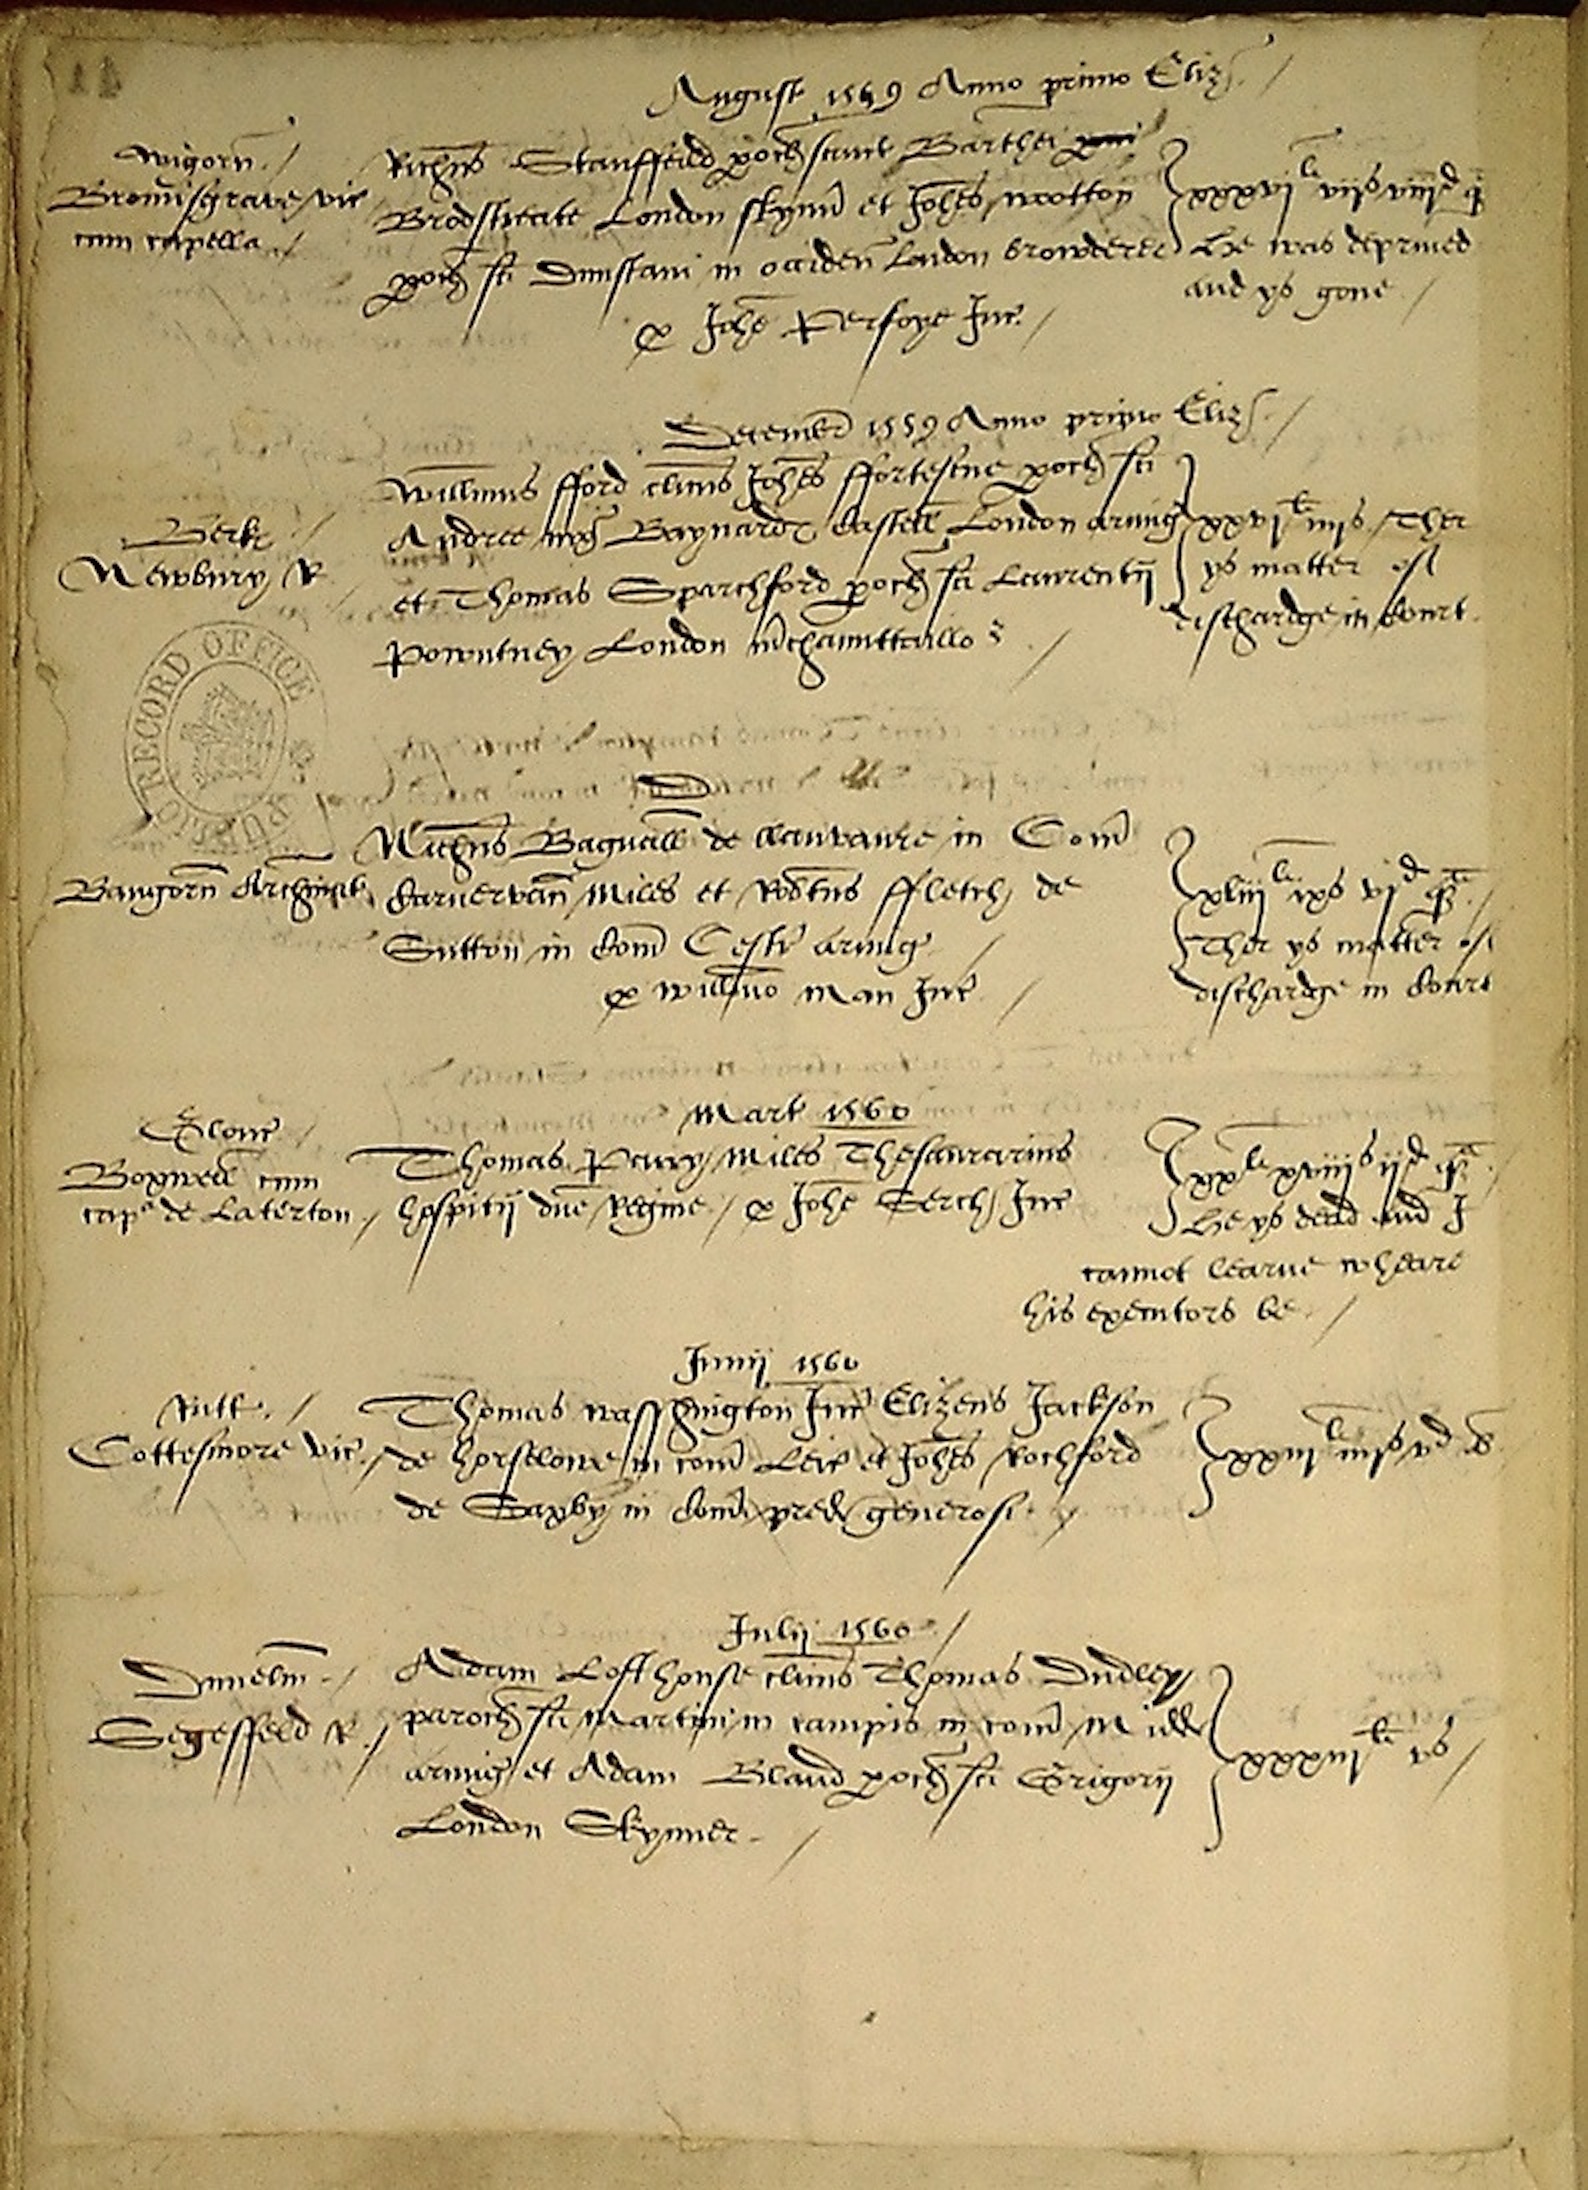 August 1559 Anno primo Eliz
Wigorn
Bromisgrave vic
cum capella
Richus Stanffeild poch sancte Barthei
Brodstreate London skynn et Johes Wotton
poch sci Dunstani in occiden London browderer
p Johe Persoye Inc
xxxvi li viis viiid q
He was deprived
and ys gone
Decembr 1559 Anno primo Eliz
Berk
Newbury R
Willmus fford clicus Johes ffortescue poch sci
Andree iuxa Baynardes Castell London armig
et Thomas Sparchford poch sci Laurentij
Powntney London mchaunttaillor
xxvi li iiiis Ther
ys matter of
dischardge in Court
PUBLIC RECORD OFFICE
D
Bangorn Archinat
Nichus Bagnall de in Com
Carnervan Miles et Robtus ffletch de
Sutton in Com Cestr armig
p Willmo Man Inc
xliii li ixs vid q
Ther ys matter of
dischardge in Court
Mart 1560
Glouc
Boxwell cum
capa de Laterton
Thomas Parry Miles Thesaurarius
hospitij dne Regine p Johe Serch Inc
xx li xviiis iid q
He ys dead and I
cannot learne wheare
his executors be
Junij 1560
Rutt
Cottesmore vic
Thomas Wasshington Inc Elizeus Jackson
de horselowe in com Leic et Johes Rochford
de Saxby in Com pred generosi
xxiii li iiiis vd ob
Julij 1560
Dunelm
Segesffeld R
Adam Lofthouse clicus Thomas Dudley
paroch sci Martini in campis in com Midd
armig et Adam Bland poch sci Grigorij
London Skynner
xxxiii li vs